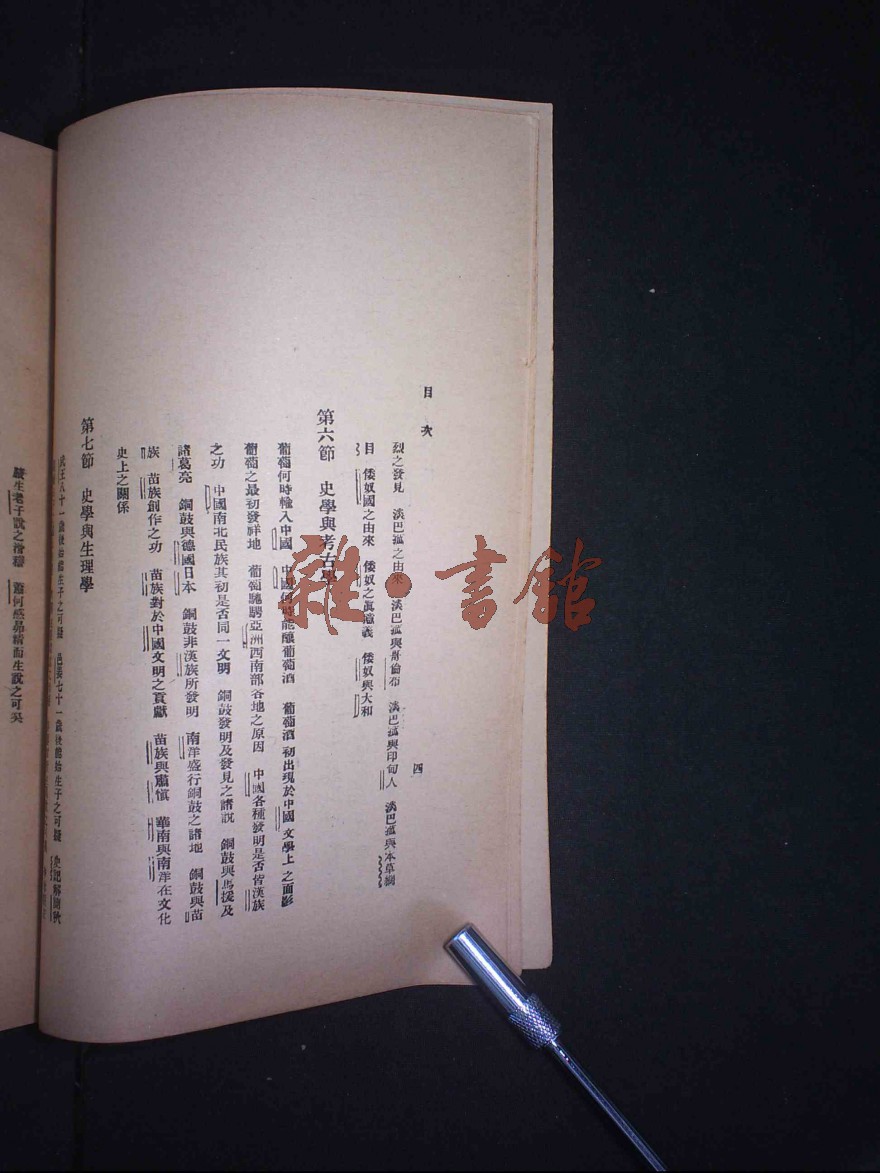 目次
四
烈之發見　淡巴菰之由來　淡巴菰與哥倫布　淡巴菰與印甸人　淡巴菰與本草綱
目　倭奴國之由來　倭奴之眞意義　倭奴與大和
第六節　史學與考古學
葡萄何時輸入中國　中國何時能釀葡萄酒　葡萄酒初出現於中國文學上之面影
葡萄之最初發祥地　葡萄騁亞洲西南部各地之原因　中國各種發明是否皆漢族
之功　中國南北民族其初是否同一文明　銅鼓發明及發見之諸說　銅鼓與馬援及
諸葛亮　銅鼓與德國日本　銅鼓非漢族所發明　南洋盛行銅鼓之諸地　銅鼓與苗
族　苗族創作之功　苗族對於中國文明之貢獻　苗族與肅愼　華南與南洋在文化
史上之關係
第七節　史學與生理學
武王八十一歲後始能生子之可疑　邑姜七十一歲後能始生子之可疑　史記解
說之可吳
雜·書館